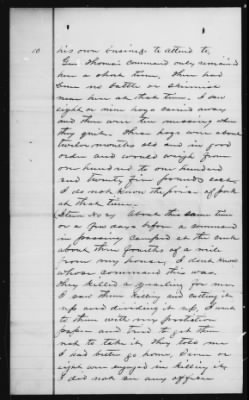 10 his own business to attend to.
Genl Thomas' command only remained
here a short time, there had
been no battle or skirmish
near here at that time. I saw
eight or nine hogs carried away
and there were ten missing when
they quit. These hogs were about
twelve months old and in good
order and would weigh from
one hundred to one hundred
and twenty five pounds each.
I do not know the price of pork
at that time.
(Item No. 2) About this same time
or a few days before a command
in passing camped at the creek
about three fourths of a mile
from my house, I don't know
whose command this was.
they killed a yearling for me.
I saw them killing and cutting it
up and dividing it up, I went
to them with my protection
paper and tried to get them
not to take it, they told me
I had better go home, seven or
eight were engaged in killing it,
I did not see any officer